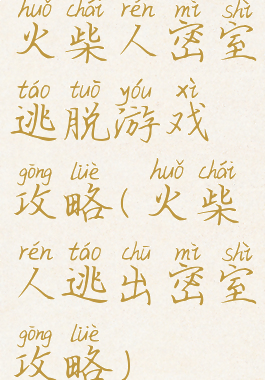 huǒ chái rén mì shì
火柴人密室
táo tuō yóu xì
逃脱游戏
gōng lüè huǒ chái
攻略(火柴
rén táo chū mì shì
人逃出密室
gōng lüè
攻略)